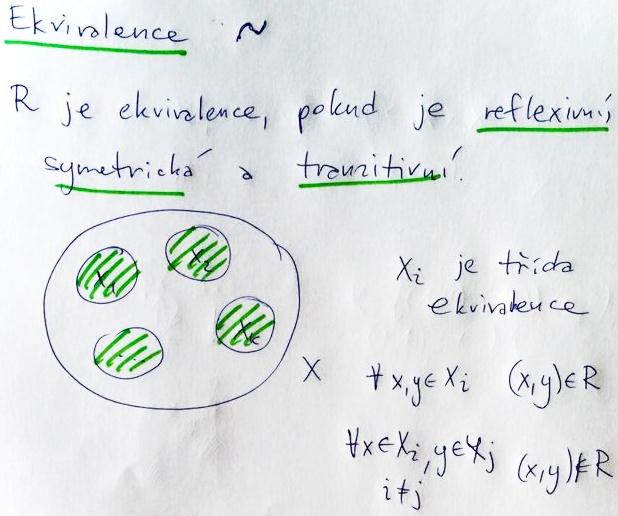 Ekvivalence ~
R je ekvivalence, pokud je reflexivní,
symetrická a tranzitivní.
X₁ X₂
Xᵢ je třída
ekvivalence
Xₖ
...
X ∀ x,y ∈ Xᵢ (x,y) ∈ R
∀x ∈ Xᵢ, y ∈ Xⱼ (x,y) ∉ R
i ≠ j